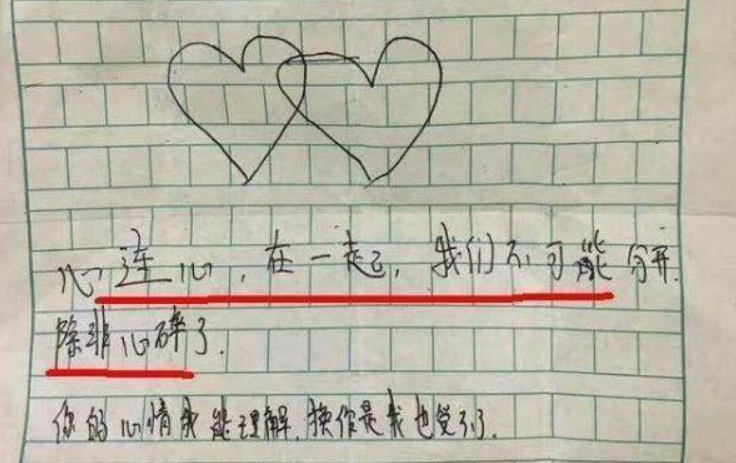 心连心,在一起,我们不可能分开.
除非心碎了.
你的心情我能理解.换作是我也受不了.